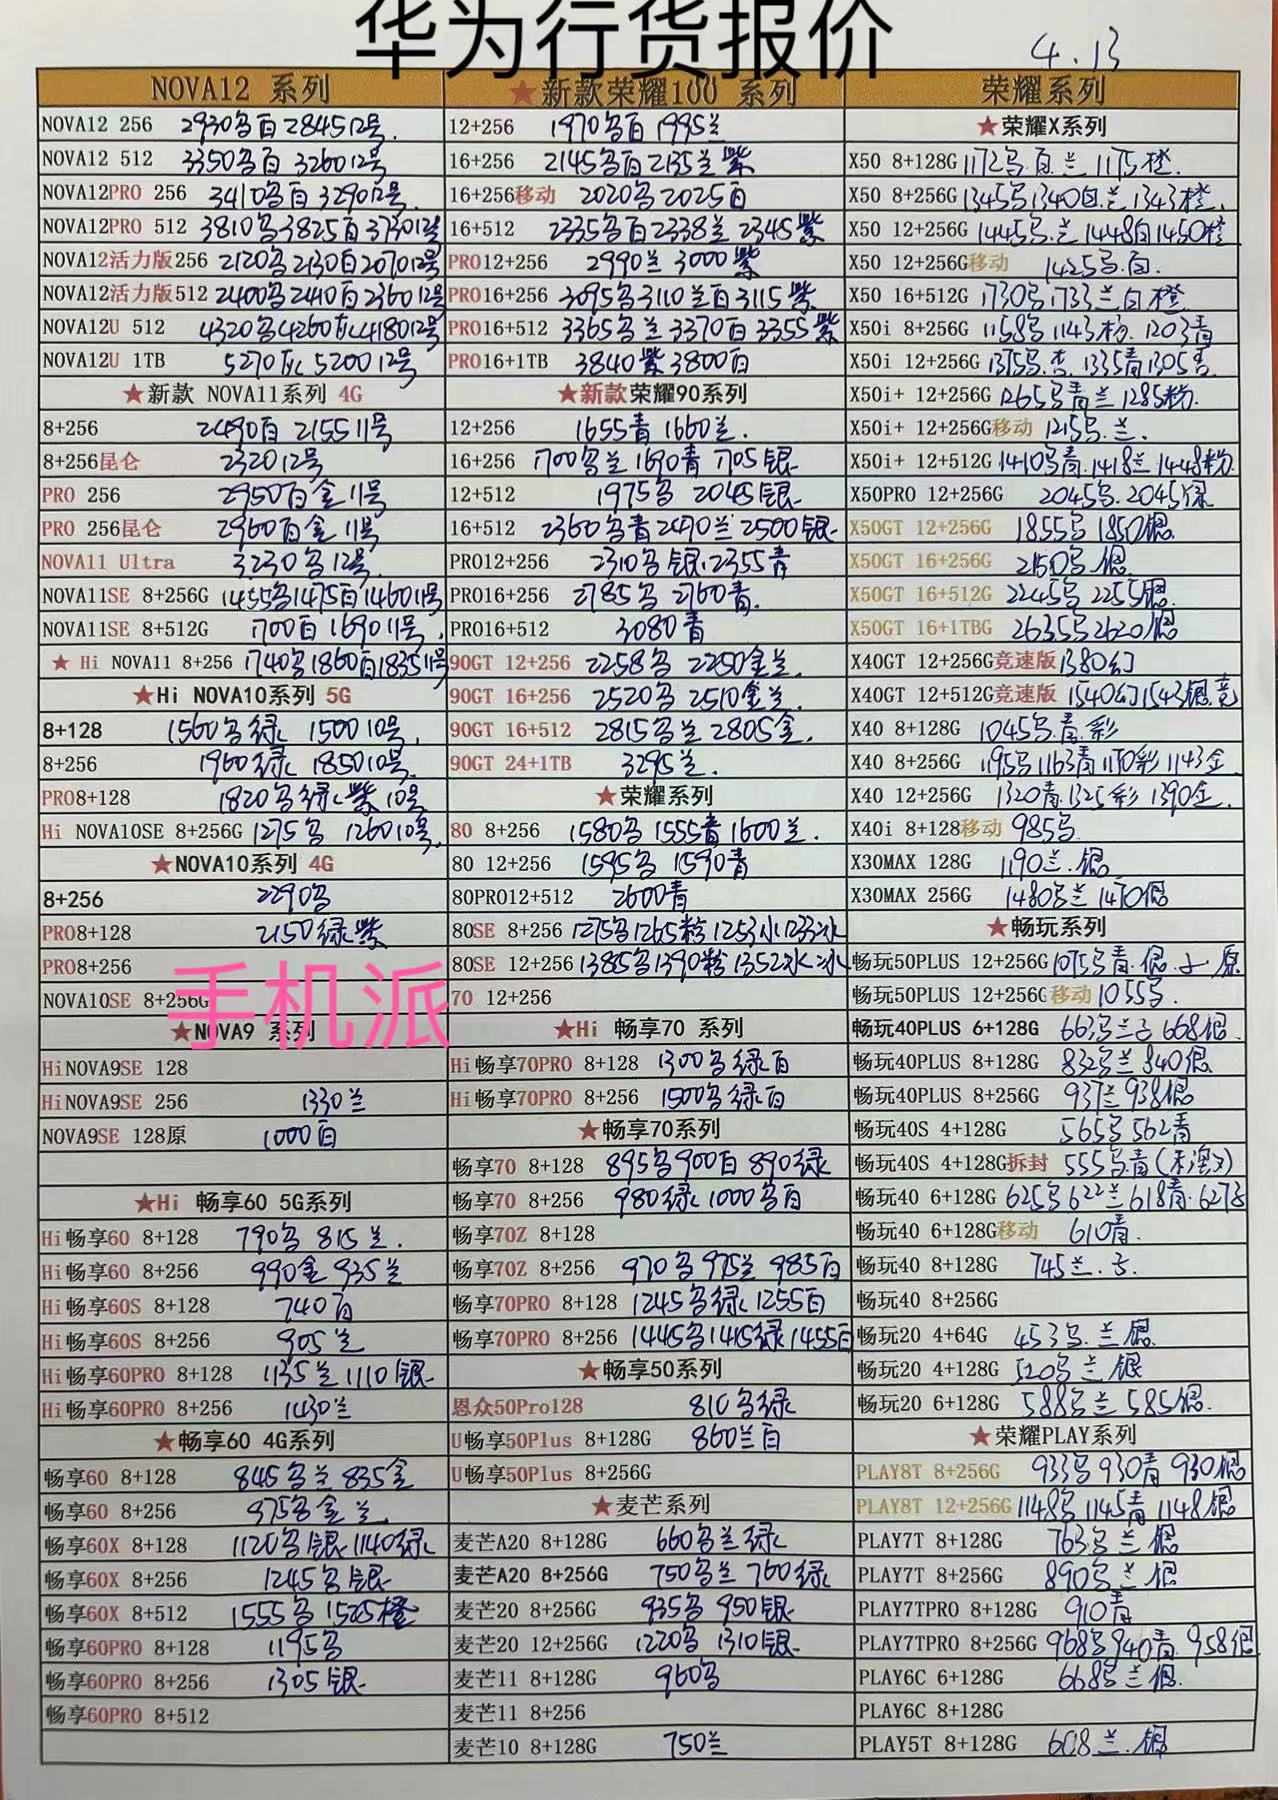 华为行货报价
4.13
NOVA12 系列
NOVA12 256 2930名百 2845 12号.
NOVA12 512 3350名百 3260 12号
NOVA12PRO 256 3410名百 3290 12号.
NOVA12PRO 512 3810名3825百3730 12号
NOVA12活力版256 2120名2130百2070 12号
NOVA12活力版512 2400名2410百2360 12号
NOVA12U 512 4320名4260 4180 12号
NOVA12U 1TB 5270 5200 12号
★新款 NOVA11系列 4G
8+256 2490百 2155 11号
8+256昆仑 2320 12号
PRO 256 2950百金 11号
PRO 256昆仑 2960百金 11号
NOVA11 Ultra 3230名 12号
NOVA11SE 8+256G 1455名1475百1460 11号
NOVA11SE 8+512G 1700百 1690 11号.
★ Hi NOVA11 8+256 1740名1860百1835 11号
★Hi NOVA10系列 5G
8+128 1560名绿 1500 10号.
8+256 1960绿 1850 10号.
PRO8+128 1820名绿紫 10号
Hi NOVA10SE 8+256G 1275名 1260 10号.
★NOVA10系列 4G
8+256 2290名
PRO8+128 2150绿紫
PRO8+256
手机派
NOVA10SE 8+256G
★NOVA9 系列
HiNOVA9SE 128
HiNOVA9SE 256 1330兰
NOVA9SE 128原 1000百
★Hi 畅享60 5G系列
Hi畅享60 8+128 790名 815兰.
Hi畅享60 8+256 990金 935兰
Hi畅享60S 8+128 740百
Hi畅享60S 8+256 905兰
Hi畅享60PRO 8+128 1135兰1110银
Hi畅享60PRO 8+256 1430兰
★畅享60 4G系列
畅享60 8+128 845名兰 835金
畅享60 8+256 975名金兰
畅享60X 8+128 1120名银1140绿
畅享60X 8+256 1245名银
畅享60X 8+512 1555名1525橙
畅享60PRO 8+128 1195名
畅享60PRO 8+256 1305银
畅享60PRO 8+512
★新款荣耀100 系列
12+256 1970名百 1995兰
16+256 2145名百2135兰紫
16+256移动 2020名2025百
16+512 2335名百2338兰 2345紫
PRO12+256 2990兰 3000紫
PRO16+256 3095名3110兰百3115紫
PRO16+512 3365名兰3370百3355紫
PRO16+1TB 3840紫3800百
★新款荣耀90系列
12+256 1655青1660兰.
16+256 1700名兰1690青1705银
12+512 1975名 2045银
16+512 2360名青2490兰2500银
PRO12+256 2310名银.2355青
PRO16+256 2785名 2760青.
PRO16+512 3080青
90GT 12+256 2258名 2250金兰.
90GT 16+256 2520名 2510金兰.
90GT 16+512 2815名兰2805金.
90GT 24+1TB 3295兰.
★荣耀系列
80 8+256 1580名1555青1600兰.
80 12+256 1595名 1590青
80PRO12+512 2600青
80SE 8+256 1275名1265粉1253水1233冰
80SE 12+256 1385名1390粉1352水冰
70 12+256
★Hi 畅享70 系列
Hi畅享70PRO 8+128 1300名绿百
Hi畅享70PRO 8+256 1500名绿百
★畅享70系列
畅享70 8+128 895名900百890绿
畅享70 8+256 980绿1000名百
畅享70Z 8+128
畅享70Z 8+256 970名975兰985百
畅享70PRO 8+128 1245名绿1255百
畅享70PRO 8+256 1445名1415绿1455百
★畅享50系列
恩众50Pro128 810名绿
U畅享50Plus 8+128G 860兰百
U畅享50Plus 8+256G
★麦芒系列
麦芒A20 8+128G 660名兰绿
麦芒A20 8+256G 750名兰760绿
麦芒20 8+256G 935名 950银
麦芒20 12+256G 1220名 1310银
麦芒11 8+128G 960名
麦芒11 8+256
麦芒10 8+128G 750兰
荣耀系列
★荣耀X系列
X50 8+128G 1172名.百.兰 1175橙.
X50 8+256G 1345名1340百.兰1343橙.
X50 12+256G 1445名.兰1448百1450橙
X50 12+256G移动 1425名.百.
X50 16+512G 1730名1733兰百橙
X50i 8+256G 1158名1143粉.1203青
X50i 12+256G 1375名. 1335青1305
X50i+ 12+256G 1265名青兰1285粉.
X50i+ 12+256G移动 1215名.兰.
X50i+ 12+512G 1410名青.1418兰1448粉
X50PRO 12+256G 2045名.2045绿
X50GT 12+256G 1855名1850银
X50GT 16+256G 2150名.银.
X50GT 16+512G 2245名 2255银
X50GT 16+1TBG 2635名2620银
X40GT 12+256G竞速版 1380幻
X40GT 12+512G竞速版 1540幻1543银.竞
X40 8+128G 1045名青.彩
X40 8+256G 1195名1163青1170彩1143金
X40 12+256G 1320青1325彩1390金.
X40i 8+128移动 985名.
X30MAX 128G 1190兰.银
X30MAX 256G 1480名兰1470银
★畅玩系列
畅玩50PLUS 12+256G 1075名青.银 原
畅玩50PLUS 12+256G移动 1055名.
畅玩40PLUS 6+128G 663名兰 668银
畅玩40PLUS 8+128G 832名兰840银
畅玩40PLUS 8+256G 937兰938银
畅玩40S 4+128G 565名562青
畅玩40S 4+128G拆封 555名青
畅玩40 6+128G 625名622兰618青.627
畅玩40 6+128G移动 610青.
畅玩40 8+128G 745兰.
畅玩40 8+256G
畅玩20 4+64G 453名.兰银
畅玩20 4+128G 520名兰银
畅玩20 6+128G 588名兰585银.
★荣耀PLAY系列
PLAY8T 8+256G 933名930青930银
PLAY8T 12+256G 1148名1145青1148银
PLAY7T 8+128G 763名兰银
PLAY7T 8+256G 890名兰银
PLAY7TPRO 8+128G 910青
PLAY7TPRO 8+256G 968名940青.958银
PLAY6C 6+128G 668名兰银.
PLAY6C 8+128G
PLAY5T 8+128G 608兰.银